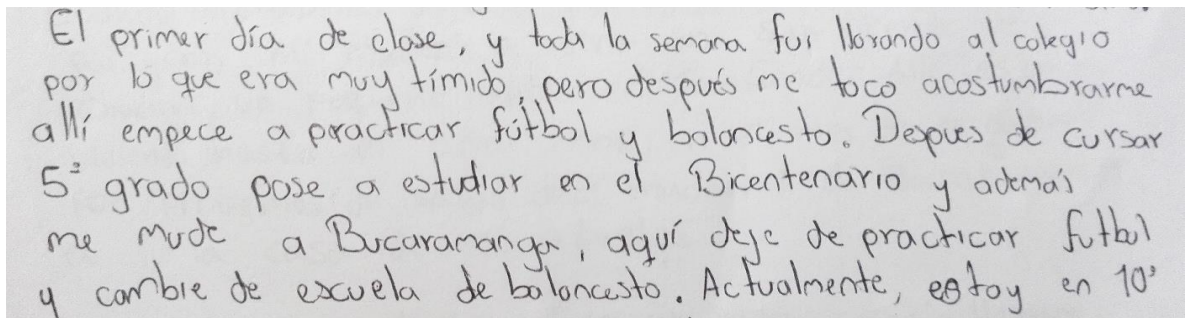 El primer día de clase, y toda la semana fui llorando al colegio
por lo que era muy tímido, pero después me toco acostumbrarme
allí empece a practicar fútbol y baloncesto. Despues de cursar
5° grado pase a estudiar en el Bicentenario y además
me mude a Bucaramanga, aquí deje de practicar futbol
y cambie de escuela de baloncesto. Actualmente, estoy en 10°